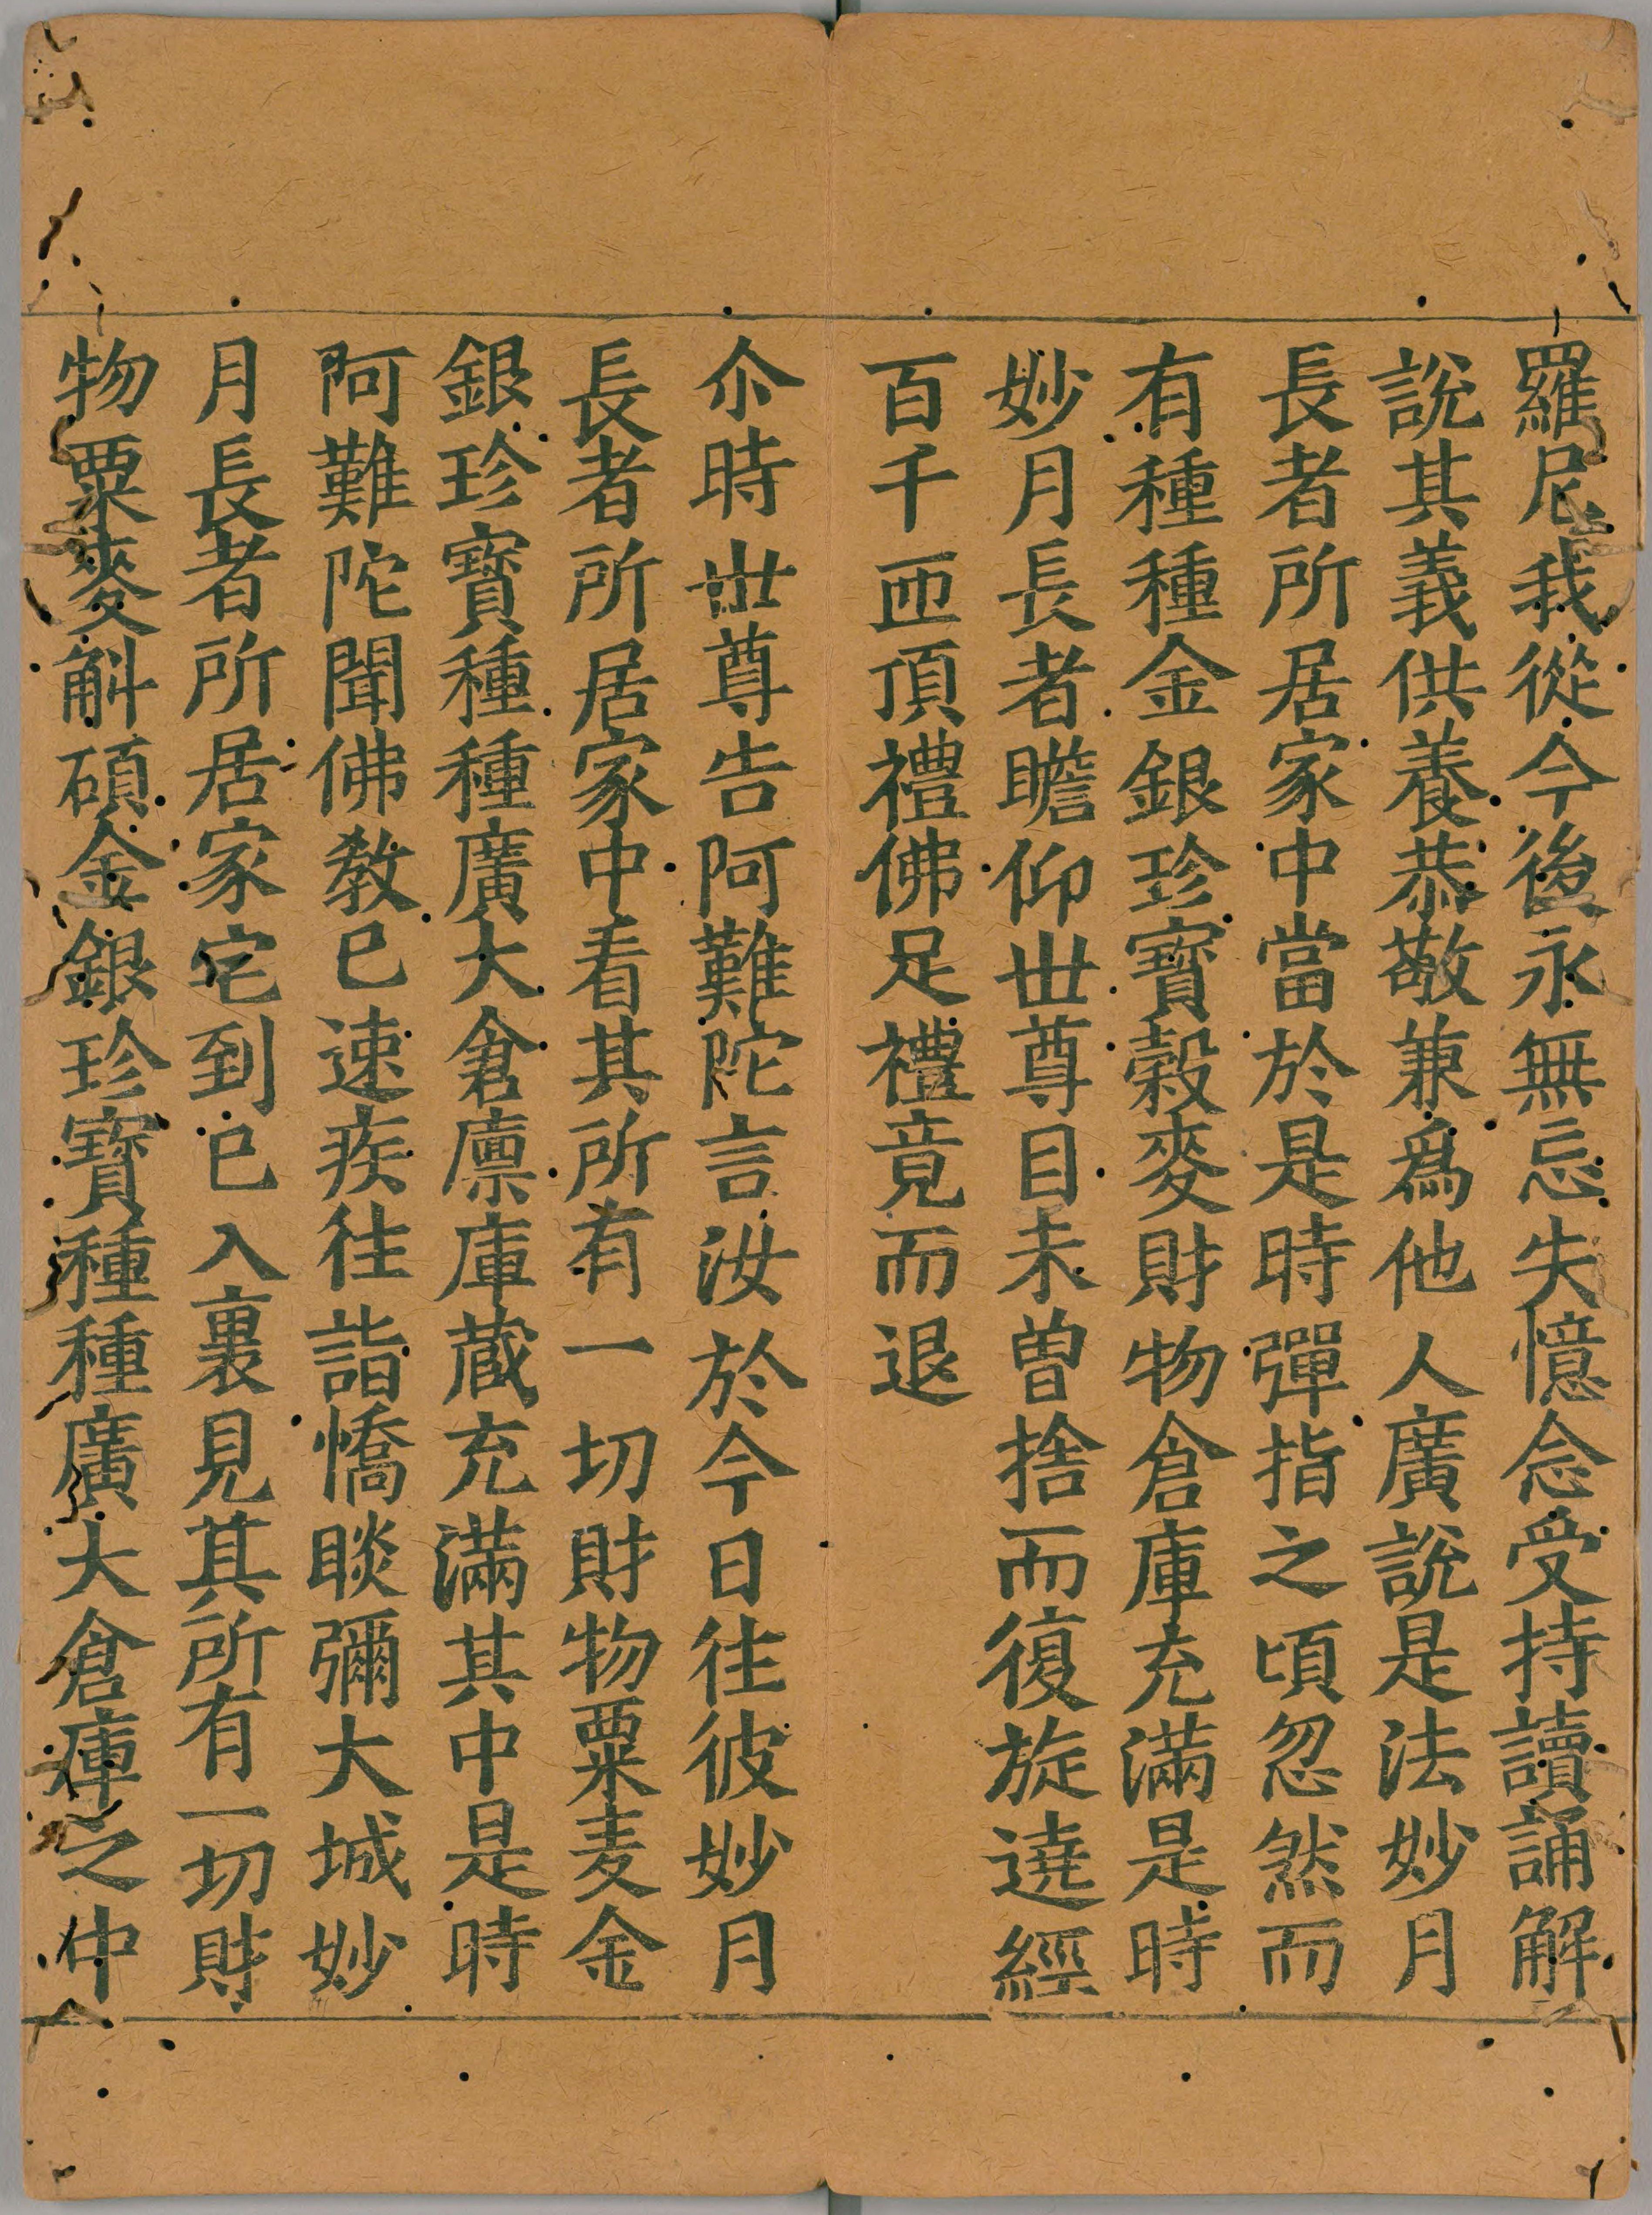 羅尼我從今後永無忘失憶念受持讀誦解
說其義供養恭敬兼爲他人廣說是法妙月
長者所居家中當於是時彈指之頃忽然而
有種種金銀珍寶穀麥財物倉庫充滿是時
妙月長者瞻仰世尊目未曾捨而復旋遶經
百千匝頂禮佛足禮竟而退
尒時世尊告阿難陀言汝於今日往彼妙月
長者所居家中看其所有一切財物粟麦金
銀珍寶種種廣大倉廪庫蔵充滿其中是時
阿難陀聞佛教已速疾往詣憍睒彌大城妙
月長者所居家宅到已入裏見其所有一切財
物粟麥斛碩金銀珍寶種種廣大倉庫之中